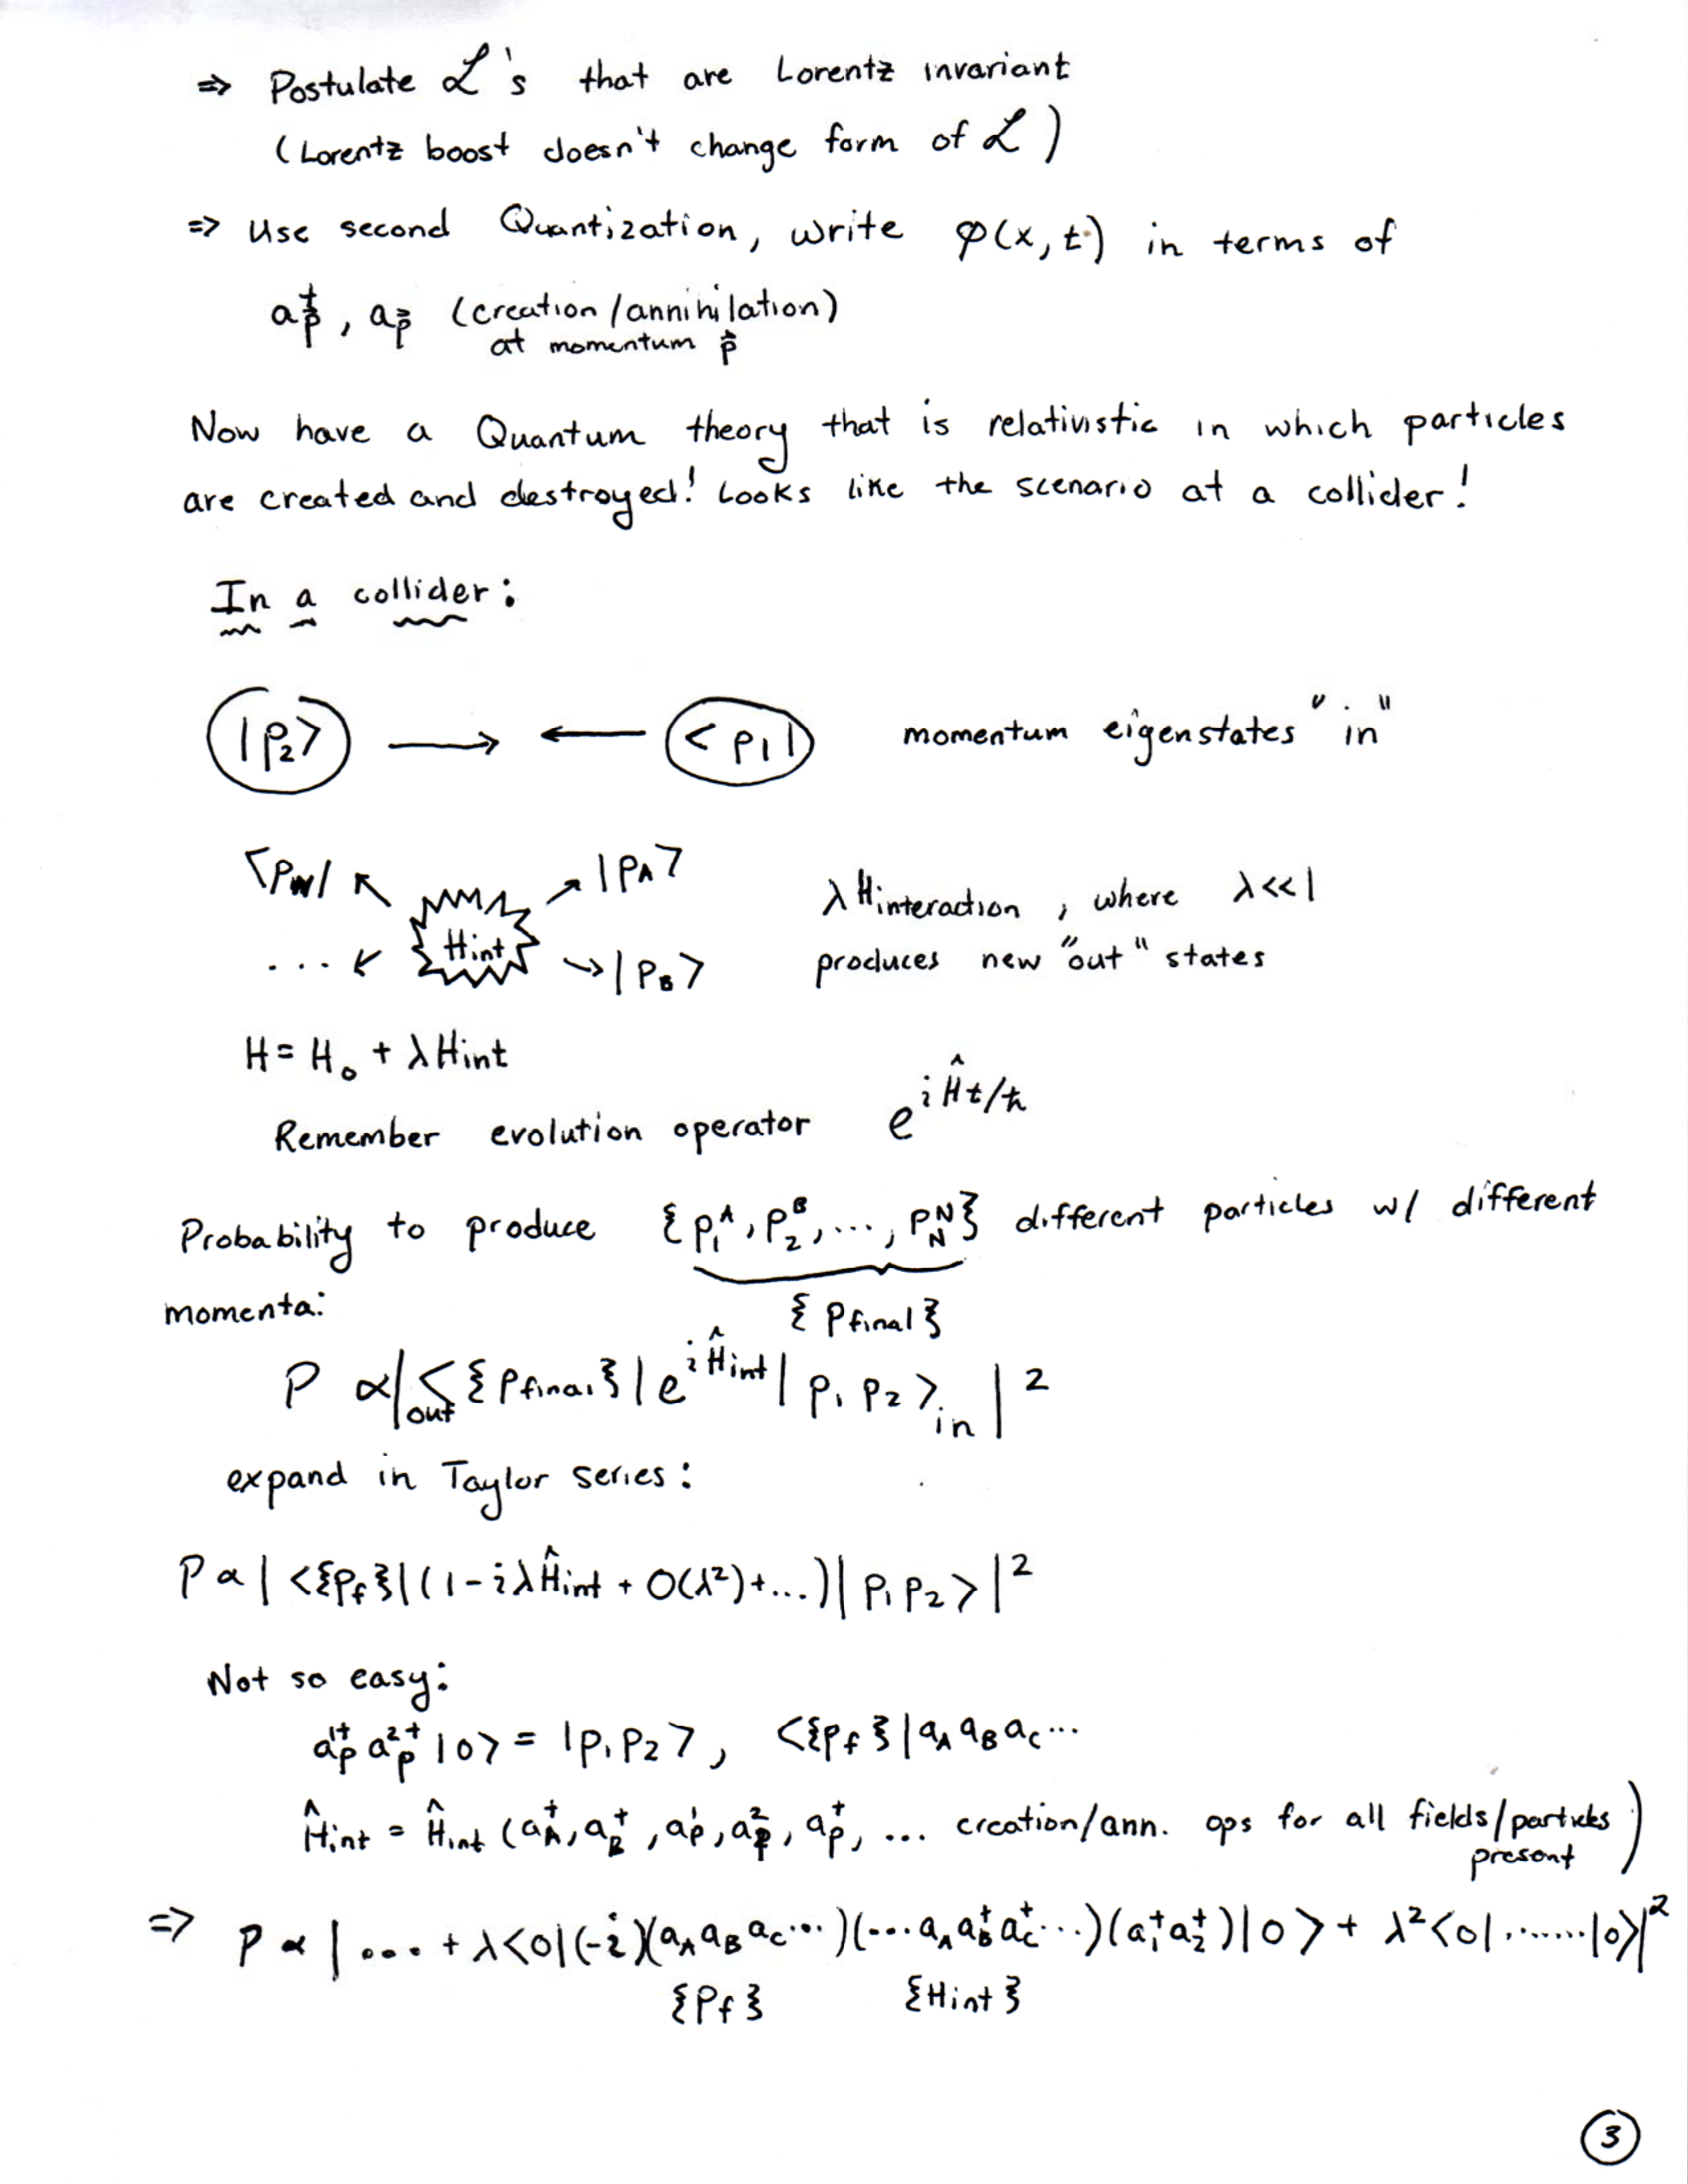 ⇒ Postulate ℒ's that are Lorentz invariant
(Lorentz boost doesn't change form of ℒ)
⇒ Use second Quantization, write φ(x,t) in terms of
a†_p⃗ , a_p⃗ (creation/annihilation)
at momentum p⃗
Now have a Quantum theory that is relativistic in which particles
are created and destroyed! Looks like the scenario at a collider!
In a collider:
|p₂> → ← <p₁| momentum eigenstates "in"
<p_N| ↖ ↗ |p_A> λ H_interaction , where λ<<1
... ↙ Hint ↘ |p_B> produces new "out" states
H = H₀ + λHint
Remember evolution operator e^{iĤt/ħ}
Probability to produce {p₁^A, p₂^B, ..., p_N^N} different particles w/ different
momenta: {p_final}
P ∝ |_out<{p_final}| e^{iĤint} | p₁ p₂ >_in |²
expand in Taylor series:
P ∝ | <{p_f}|(1 - iλĤint + O(λ²)+...)| p₁ p₂ > |²
Not so easy:
a_p^{1†} a_p^{2†} |0> = |p₁ p₂>, <{p_f}| a_A a_B a_C ...
Ĥint = Ĥint (a_A^†, a_B^†, a_p^1, a_p^2, a_p^†, ... creation/ann. ops for all fields/particles
present)
⇒ P ∝ | ... + λ<0|(-i)(a_A a_B a_C ...)(... a_A a_B^† a_C^† ...)(a₁^† a₂^†)|0> + λ²<0|.......|0>|²
{p_f} {Hint}
3